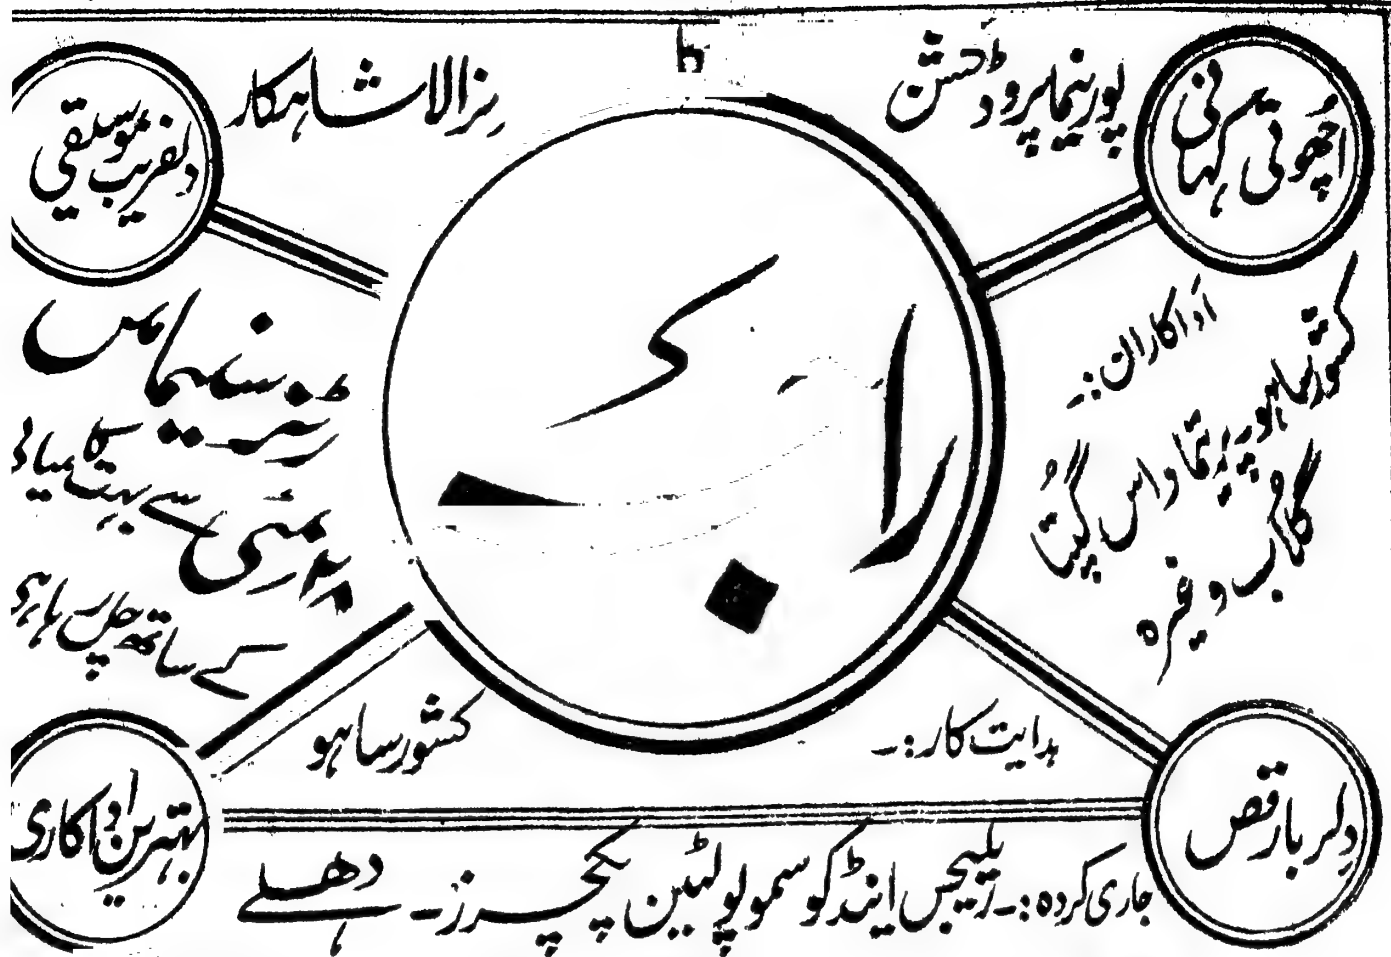 اچھوتی کہانی
پورنیما پروڈکشن
کا
نرالا شاہکار
دلفریب موسیقی
راجہ
اداکاران:۔
کشور ساہو۔ پرتما داس گپتا
گلاب وغیرہ
رٹز سنیما میں
۲۸ مئی سے بہت کامیابی
کے ساتھ چل رہا ہے
ہدایت کار:۔ کشور ساہو
دلربا رقص
بہترین اداکاری
جاری کردہ:۔ ریلیجس اینڈ کوسموپولٹین پکچرز۔ دھلے